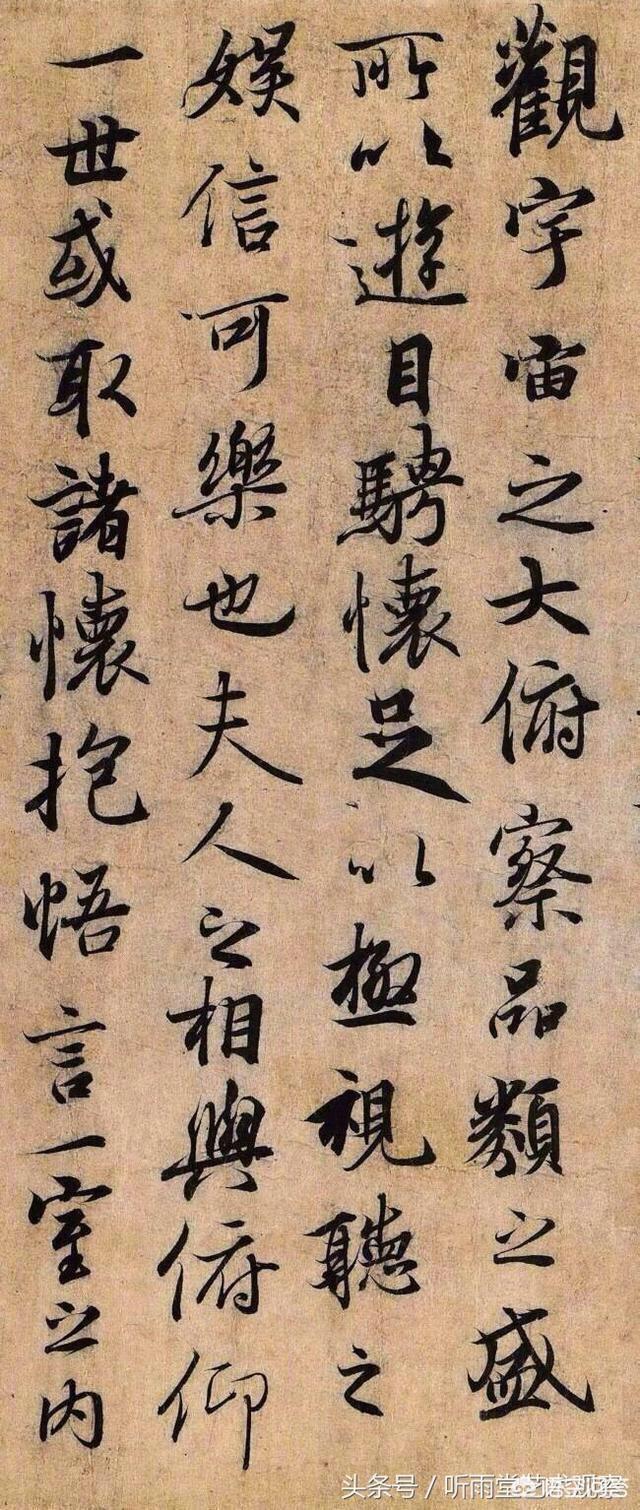 觀宇宙之大俯察品類之盛
所以遊目騁懷足以極視聽之
娱信可樂也夫人之相與俯仰
一世或取諸懷抱悟言一室之内
头条号／听雨堂艺术观察